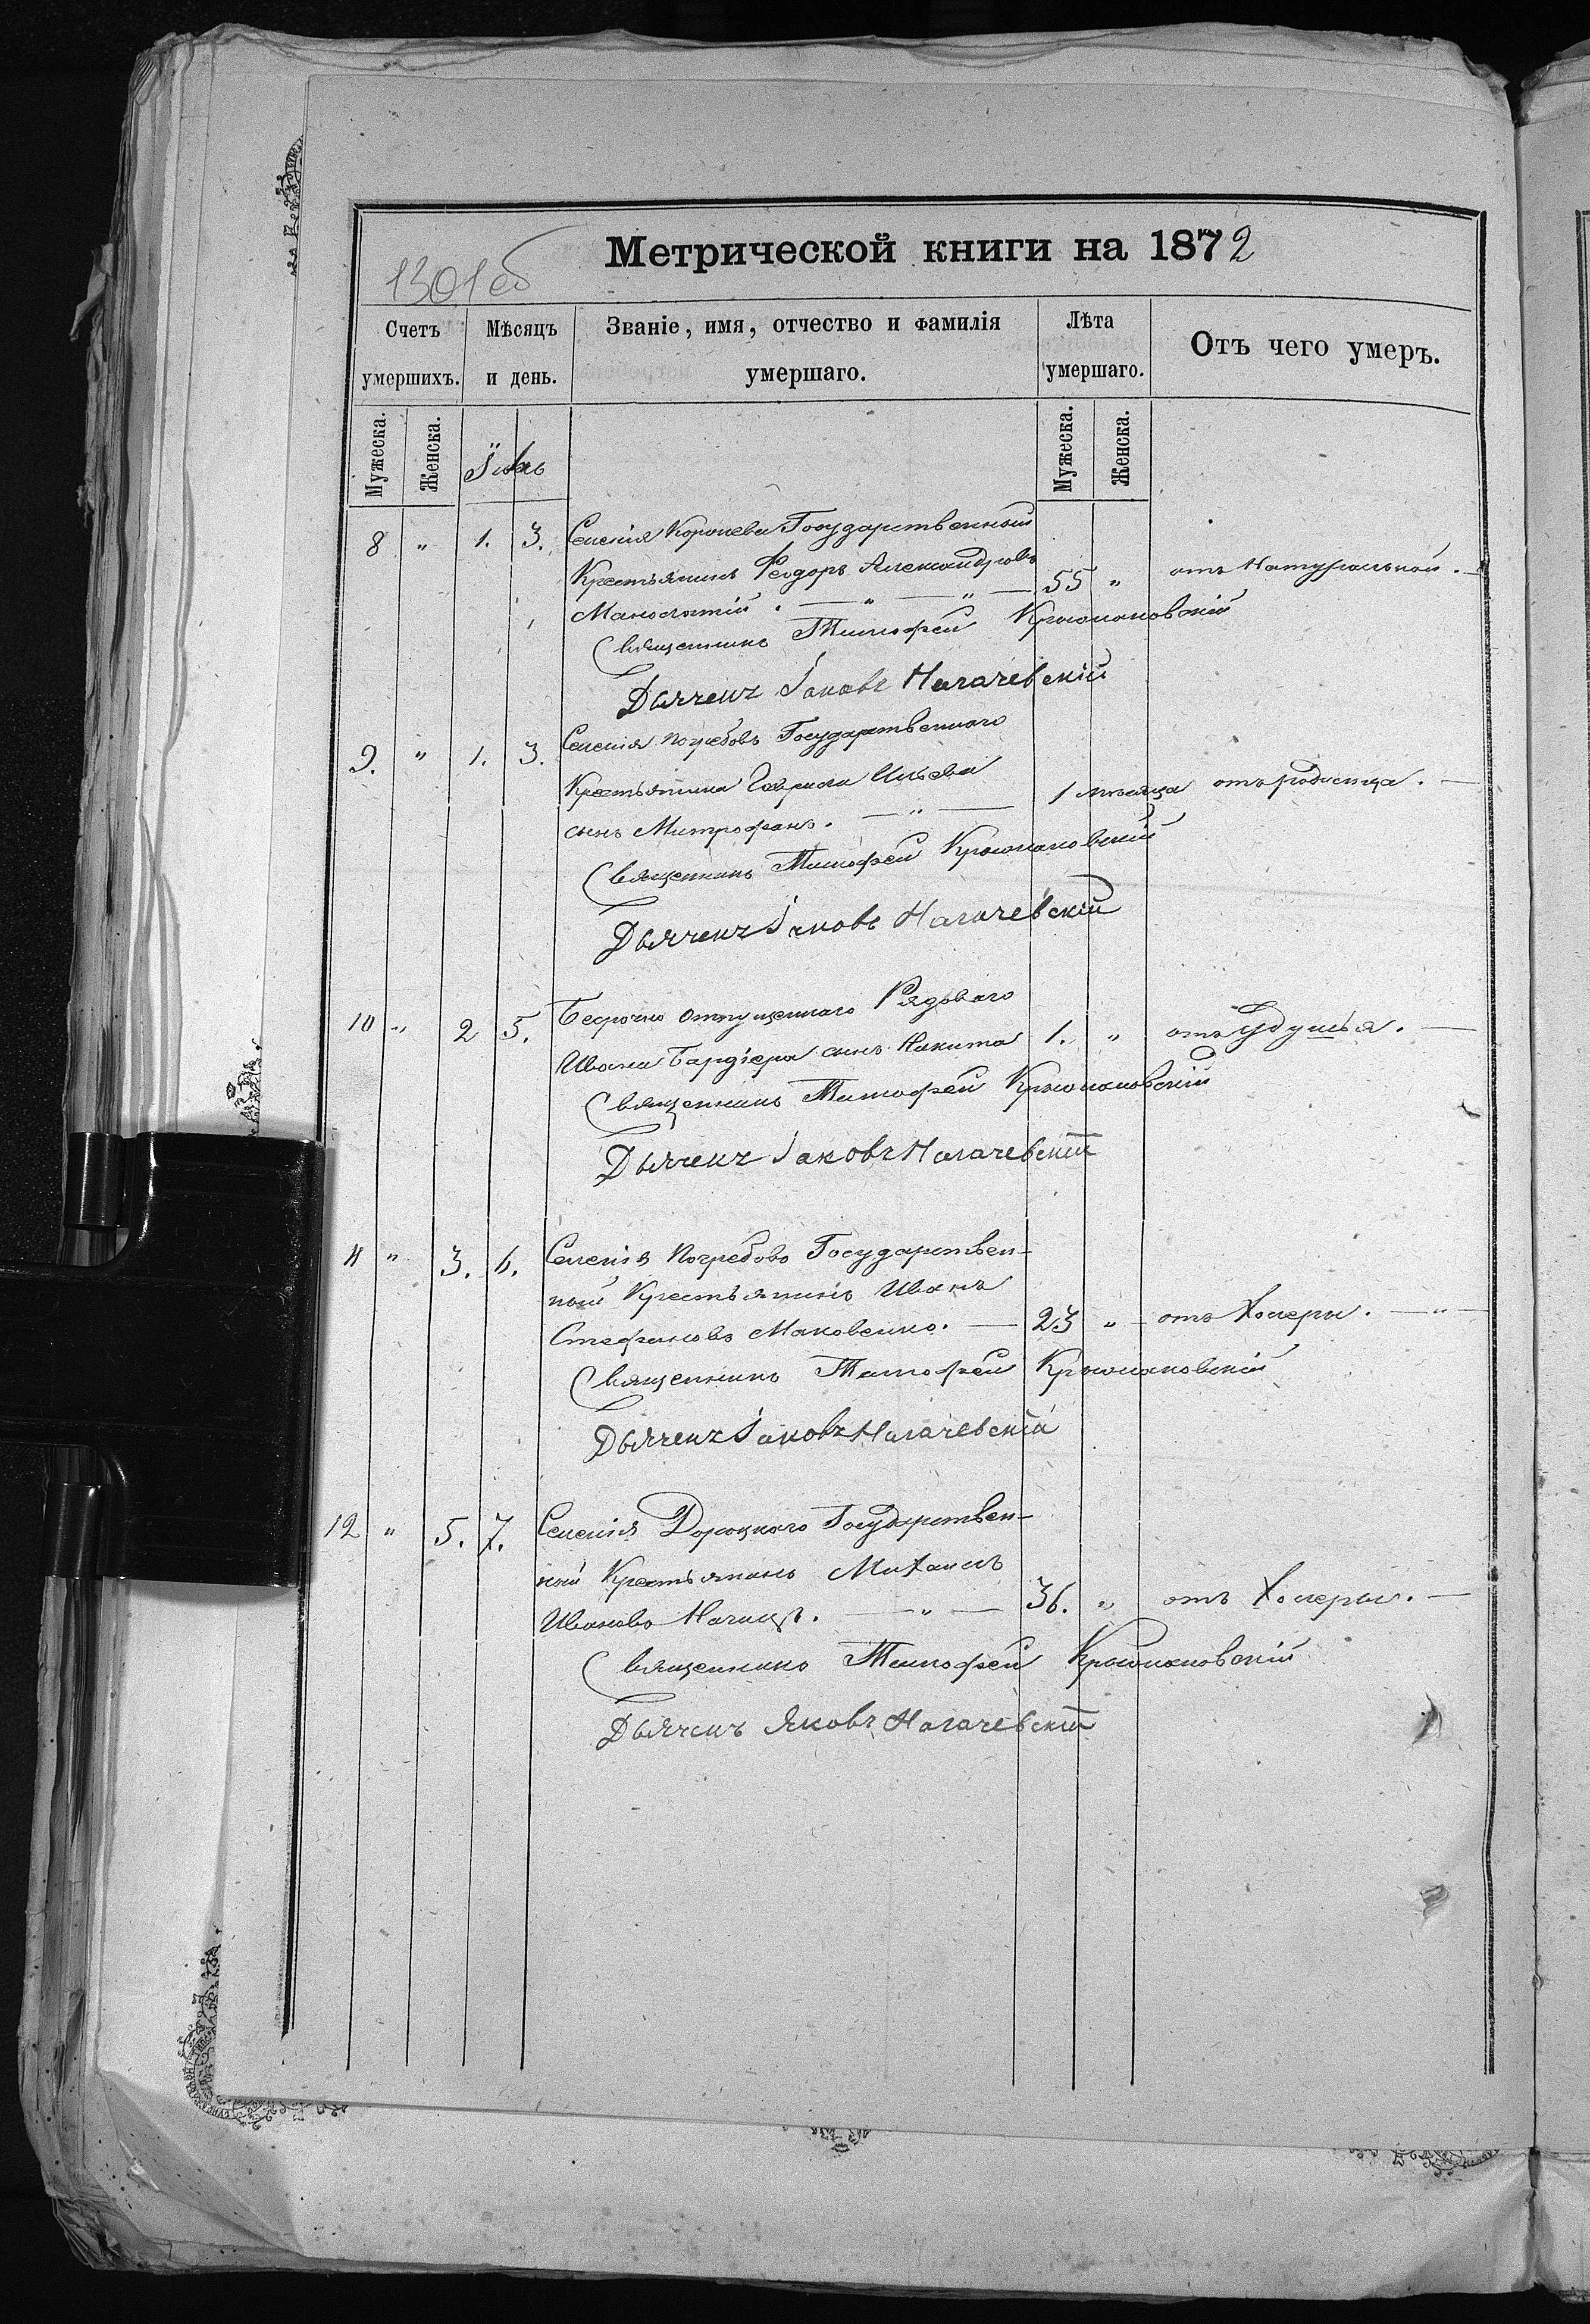 Метрической книги на 1872
1301об
Счетъ умершихъ.
Мѣсяцъ и день.
Званіе, имя, отчество и фамилія умершаго.
Лѣта умершаго.
Отъ чего умеръ.
Мужеска. Женска. Мужеска. Женска.
8 " 1. 3. Селенія Государственный
Крестьянинъ Феодоръ Александровъ 55 " отъ Натуральной. —
— " — " —
Священникъ Тимофей
Дьячекъ Іаковъ Нагачевскій
9. " 1. 3. Селенія Погребовъ Государственнаго
Крестьянина Гавріила Ильева 1 мѣсяца отъ родимца. —
сынъ Митрофанъ. — " —
Священникъ Тимофей
Дьячекъ Іаковъ Нагачевскій
10 " 2 5. Безсрочно отпущеннаго Рядоваго
Ивана сынъ Никита 1. " отъ удушья. —
Священникъ Тимофей
Дьячекъ Іаковъ Нагачевскій
11 " 3. 6. Селенія Погребовъ Государствен-
ный Крестьянинъ Иванъ
Стефановъ Маковенко. — 23 " отъ Холеры. — " —
Священникъ Тимофей
Дьячекъ Іаковъ Нагачевскій
12 " 5. 7. Селенія Дороцкаго Государствен-
ный Крестьянинъ Михаилъ
Ивановъ — " — 36. " отъ Холеры. —
Священникъ Тимофей
Дьячекъ Яковъ Нагачевскій